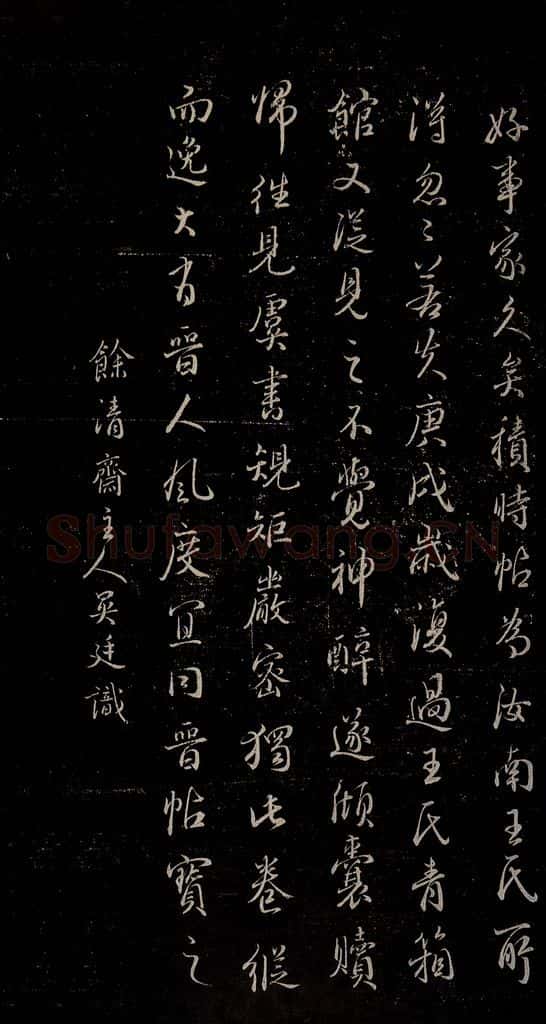 好事家久矣積時帖為汝南王氏所
得忽〻若失庚戌歲復過王氏青箱
館又從見之不覺神醉遂傾囊贖
歸往見虞書規矩嚴密獨此卷縱
而逸大有晉人風度宜同晉帖寶之
餘清齋主人吳廷識
Shufawang.CN